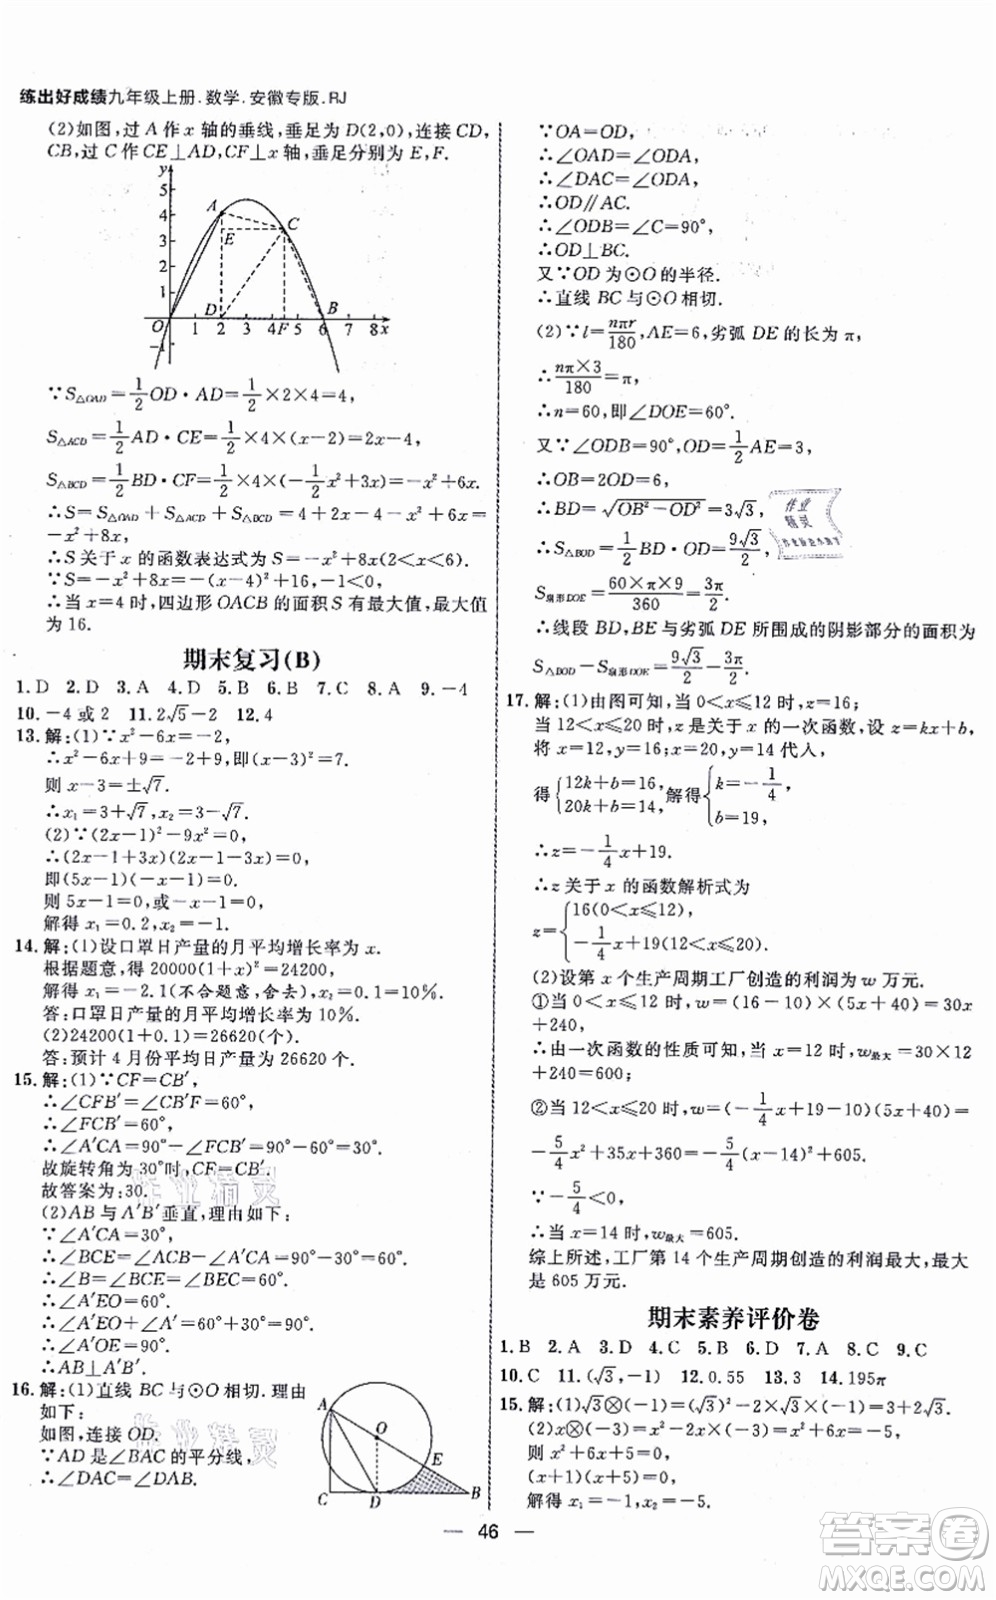 练出好成绩九年级上册.数学.安徽专版.RJ
(2)如图,过 A 作 x 轴的垂线,垂足为 D(2,0),连接 CD,
CB,过 C 作 CE⊥AD,CF⊥x 轴,垂足分别为 E,F.
y
5
4
3
2
1
-1
A
C
E
O 1 2 3 4 F 5 6 7 8 x
D
B
∵S△OAD=1/2 OD·AD=1/2×2×4=4,
S△ACD=1/2 AD·CE=1/2×4×(x-2)=2x-4,
S△BCD=1/2 BD·CF=1/2×4×(-1/2x²+3x)=-x²+6x,
∴S=S△OAD+S△ACD+S△BCD=4+2x-4-x²+6x=
-x²+8x.
∴S关于 x 的函数表达式为 S=-x²+8x(2<x<6).
∵S=-x²+8x=-(x-4)²+16,-1<0.
∴当 x=4 时,四边形 OACB 的面积 S 有最大值,最大值
为 16.
期末复习(B)
1. D 2. D 3. A 4. D 5. B 6. B 7. C 8. A 9. -4
10. -4 或 2 11. 2√5-2 12. 4
13. 解:(1)∵x²-6x=-2,
∴x²-6x+9=-2+9,即(x-3)²=7.
则 x-3=±√7.
∴x₁=3+√7,x₂=3-√7.
(2)∵(2x-1)²-9x²=0,
∴(2x-1+3x)(2x-1-3x)=0,
即(5x-1)(-x-1)=0.
则 5x-1=0,或-x-1=0.
解得 x₁=0.2,x₂=-1.
14. 解:(1)设口罩日产量的月平均增长率为 x.
根据题意,得 20000(1+x)²=24200,
解得 x₁=-2.1(不合题意,舍去),x₂=0.1=10%.
答:口罩日产量的月平均增长率为 10%.
(2)24200(1+0.1)=26620(个).
答:预计 4 月份平均日产量为 26620 个.
15. 解:(1)∵CF=CB′,
∴∠CFB′=∠CB′F=60°,
∴∠FCB′=60°,
∴∠A′CA=90°-∠FCB′=90°-60°=30°.
故旋转角为 30°时,CF=CB′.
故答案为:30.
(2)AB 与 A′B′垂直,理由如下:
∵∠A′CA=30°,
∴∠BCE=∠ACB-∠A′CA=90°-30°=60°.
∴∠B=∠BCE=∠BEC=60°.
∴∠A′EO=60°.
∴∠A′EO+∠A′=60°+30°=90°.
∴∠A′OE=90°.
∴AB⊥A′B′.
16. 解:(1)直线 BC 与⊙O 相切.理由
如下:
如图,连接 OD.
∵AD 是∠BAC 的平分线,
∴∠DAC=∠DAB.
A
O
E
C
D
B
∵OA=OD,
∴∠OAD=∠ODA.
∴∠DAC=∠ODA.
∴OD∥AC.
∴∠ODB=∠C=90°,
∴OD⊥BC.
又∵OD 为⊙O 的半径.
∴直线 BC 与⊙O 相切.
(2)∵l=nπr/180,AE=6,劣弧 DE 的长为 π,
∴nπ×3/180=π,
∴n=60,即∠DOE=60°.
又∵∠ODB=90°,OD=1/2 AE=3,
∴OB=2OD=6,
∴BD=√(OB²-OD²)=3√3,
∴S△BOD=1/2 BD·OD=9√3/2,
S扇形DOE=60×π×9/360=3π/2.
∴线段 BD,BE 与劣弧 DE 所围成的阴影部分的面积为
S△BOD-S扇形DOE=9√3/2-3π/2.
17. 解:(1)由图可知,当 0<x≤12 时,z=16;
当 12<x≤20 时,z 是关于 x 的一次函数,设 z=kx+b,
将 x=12,y=16;x=20,y=14 代入,
得{12k+b=16, 20k+b=14,解得{k=-1/4, b=19,
∴z=-1/4x+19.
∴z 关于 x 的函数解析式为
z={16(0<x≤12), -1/4x+19(12<x≤20).
(2)设第 x 个生产周期工厂创造的利润为 w 万元.
①当 0<x≤12 时,w=(16-10)×(5x+40)=30x
+240.
∴由一次函数的性质可知,当 x=12 时,w最大=30×12
+240=600;
②当 12<x≤20 时,w=(-1/4x+19-10)(5x+40)=
-5/4x²+35x+360=-5/4(x-14)²+605.
∵-5/4<0,
∴当 x=14 时,w最大=605.
综上所述,工厂第 14 个生产周期创造的利润最大,最大
是 605 万元.
期末素养评价卷
1. B 2. A 3. D 4. C 5. D 6. D 7. A 8. C 9. C
10. C 11. (√3,-1) 12. 0.55 13. 3 14. 195π
15. 解:(1)√3⊗(-1)=(√3)²-2×√3×(-1)=3+2√3.
(2)x⊗(-3)=x²-2x×(-3)=x²+6x=-5,
则 x²+6x+5=0.
(x+1)(x+5)=0.
解得 x₁=-1,x₂=-5.
作业
精灵
作业精灵
作业精灵
— 46 —
答案卷
MXQE.COM